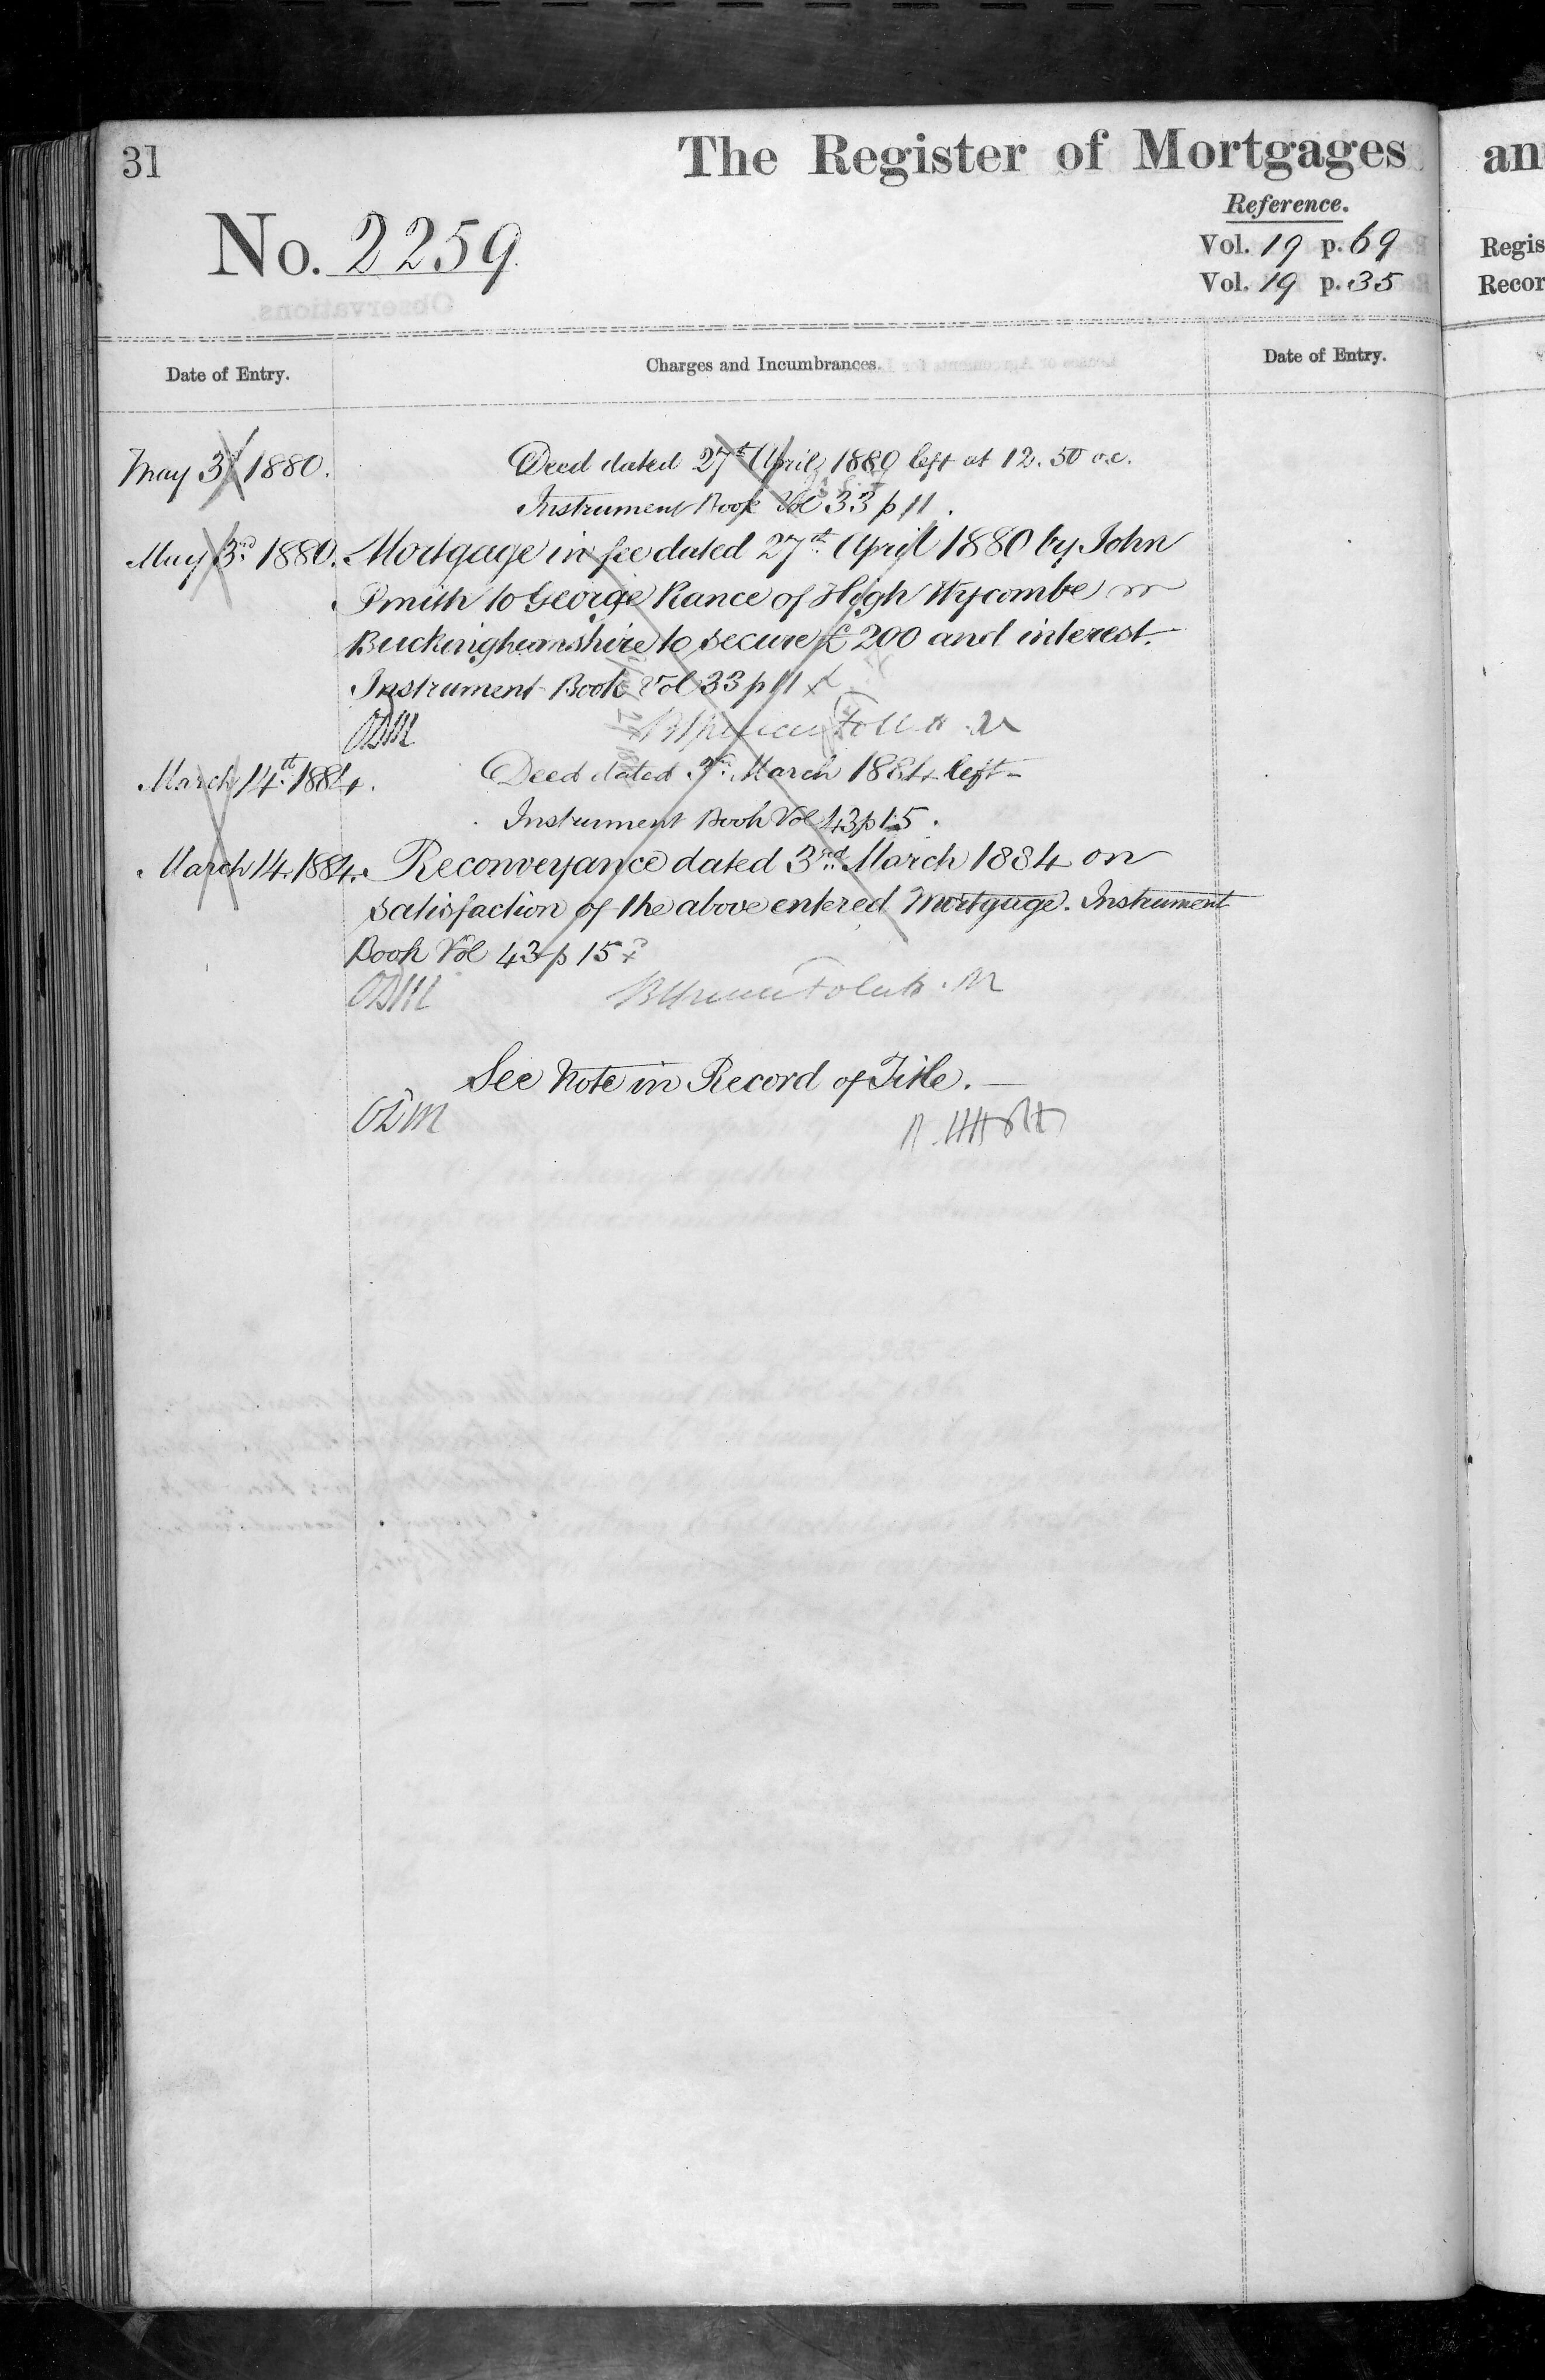 31
The Register of Mortgages
an
Reference.
No. 2259.
Vol. 17 p. 69
Vol. 19 p. 35
Regis
Recor
Observations.
Date of Entry.
Charges and Incumbrances.
Date of Entry.
May 3d 1880.
Deed dated 27th April 1880 left at 12.50 o.c.
Instrument Book Vol 33 p 11.
May 3rd 1880. Mortgage in fee dated 27th April 1880 by John
Smith to George Rance of High Wycombe in
Buckinghamshire to secure £200 and interest.
Instrument Book Vol 33 p 11
ODM
March 14th 1884.
Deed dated 3rd March 1884 left
Instrument Book Vol 43 p 15.
March 14. 1884. Reconveyance dated 3rd March 1884 on
satisfaction of the above entered Mortgage. Instrument
Book Vol 43 p 15
ODM
See Note in Record of Title.
ODM